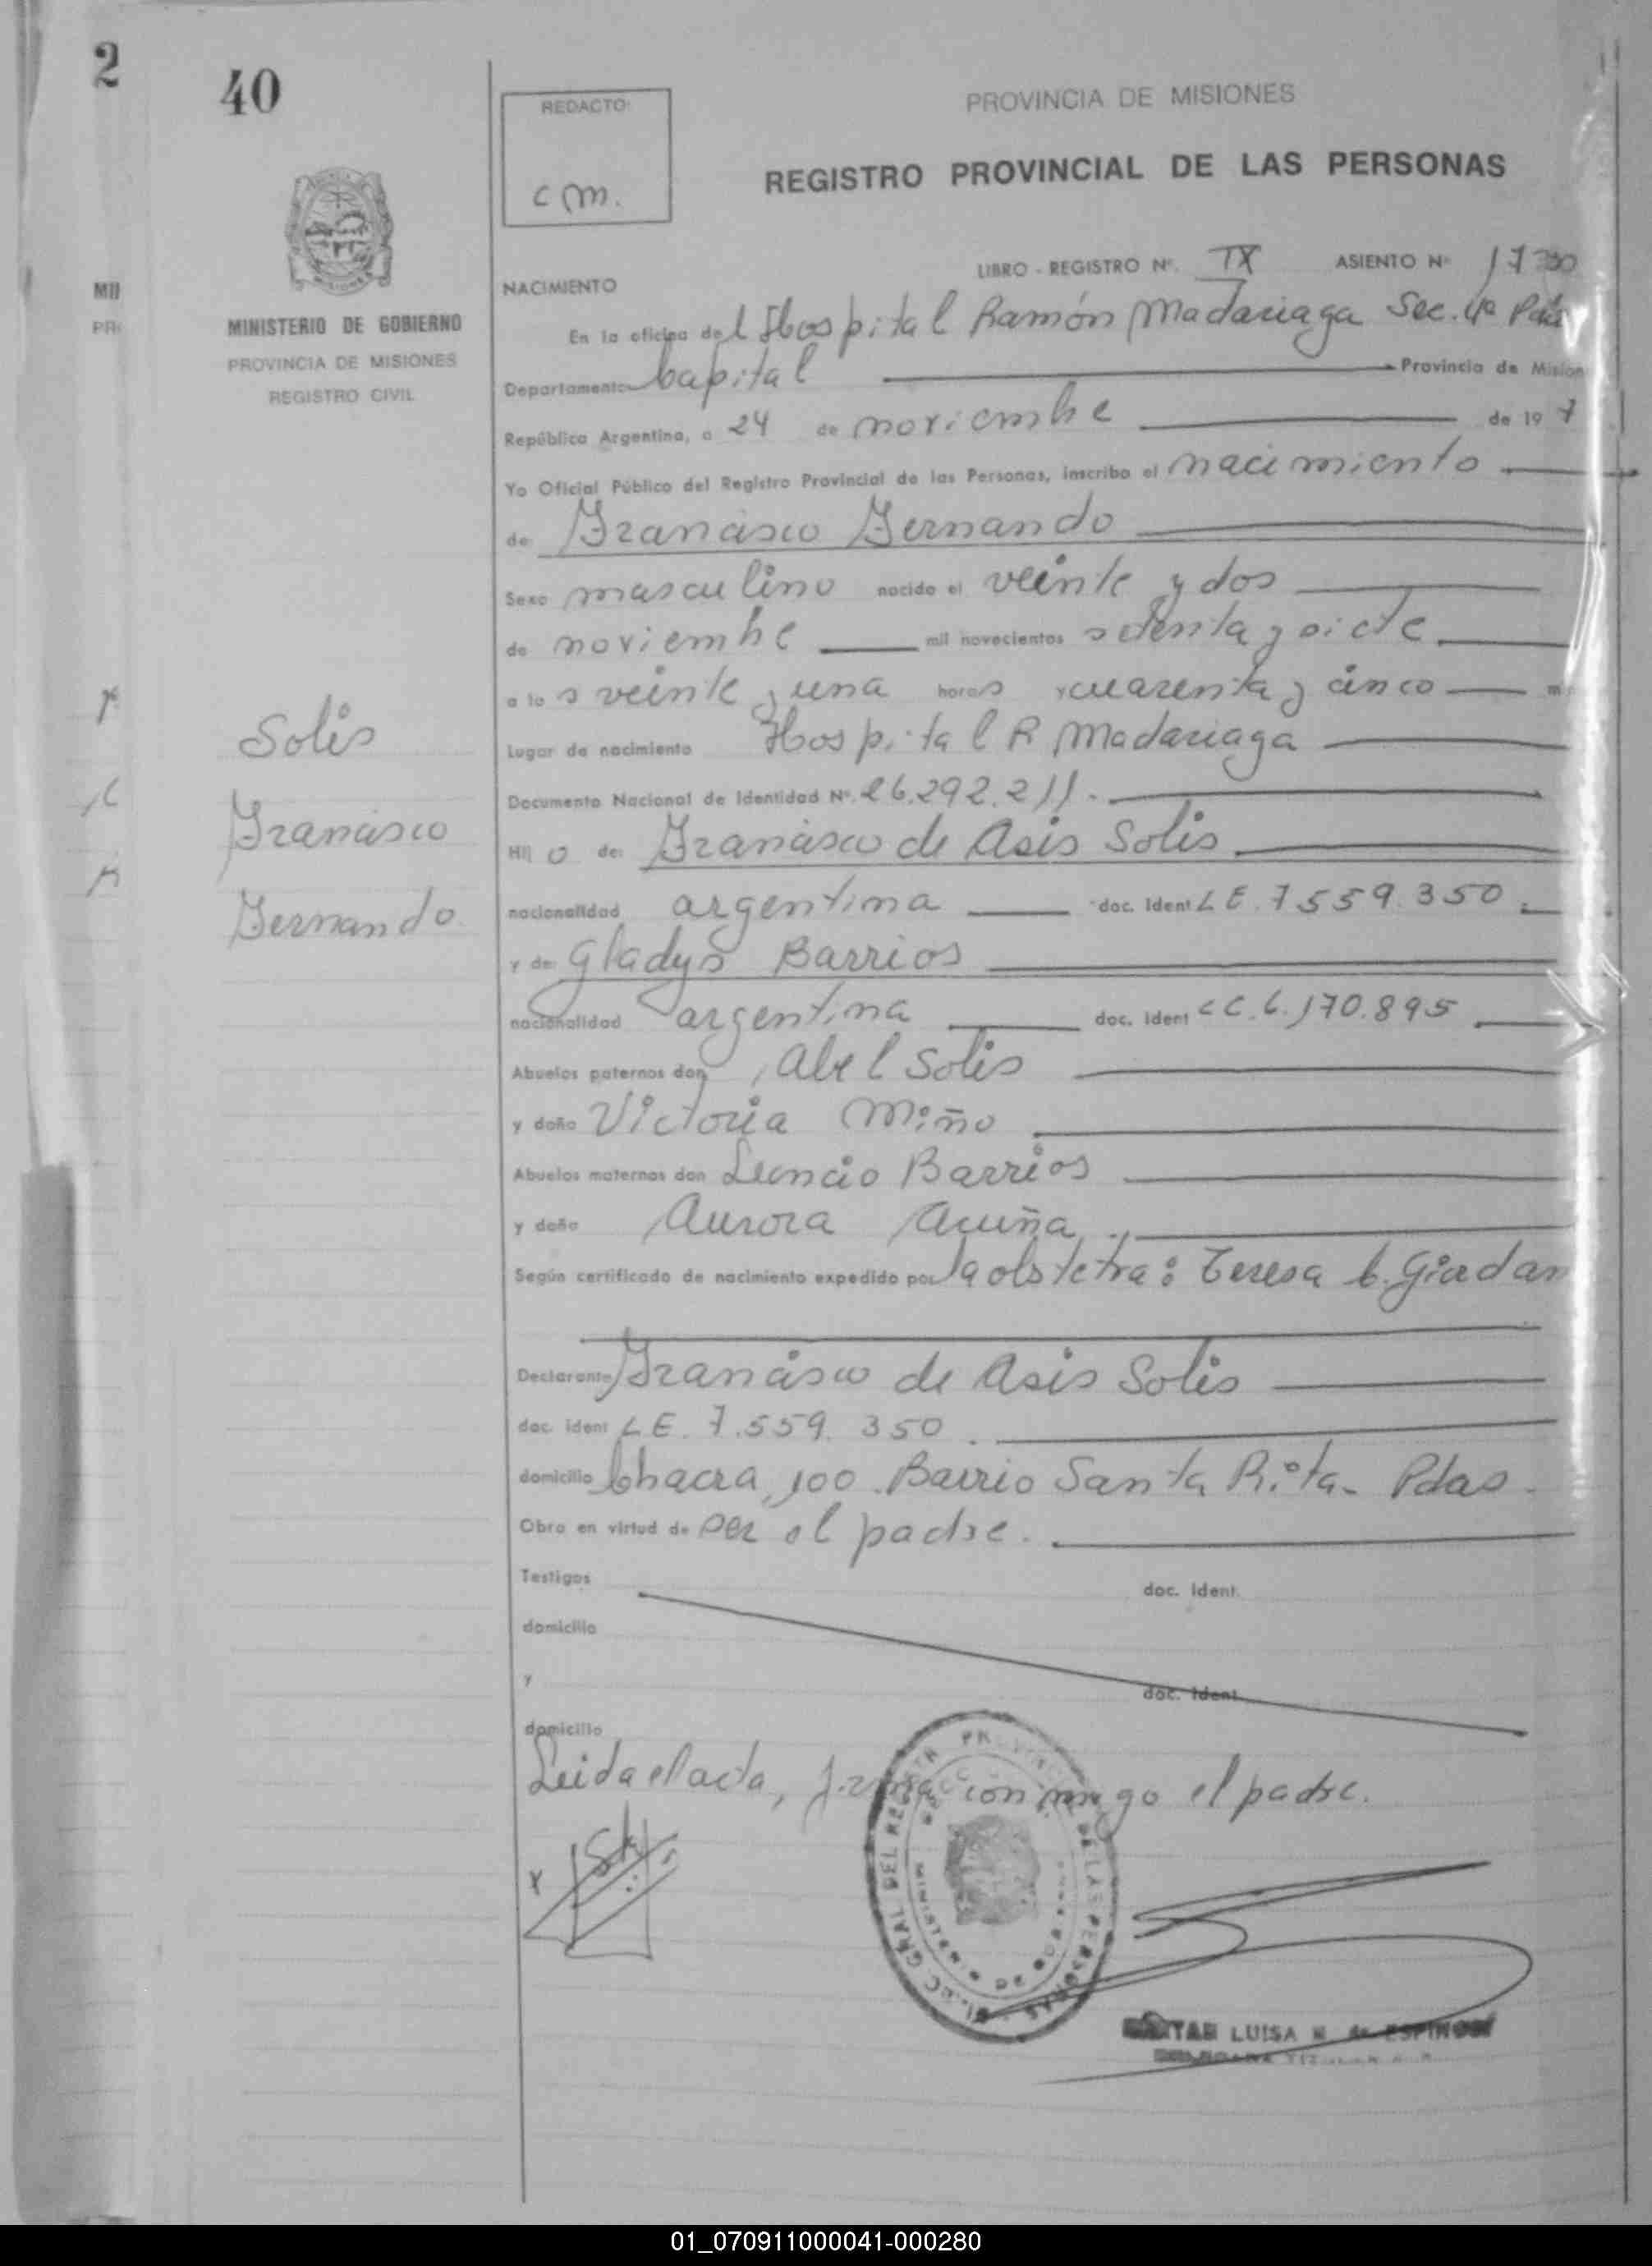 2
40
REDACTO:
cm.
PROVINCIA DE MISIONES
REGISTRO PROVINCIAL DE LAS PERSONAS
MINISTERIO DE GOBIERNO
PROVINCIA DE MISIONES
REGISTRO CIVIL
LIBRO - REGISTRO Nº. IX ASIENTO Nº
NACIMIENTO
En la oficina del Hospital Ramón Madariaga Sec. 4ª Pdas
Departamento Capital Provincia de Mision
República Argentina, a 24 de noviembre de 197
Yo Oficial Público del Registro Provincial de las Personas, inscribo el nacimiento
de Francisco Fernando
Sexo masculino nacido el veinte y dos
de noviembre mil novecientos setenta y siete
a las veinte y una horas y cuarenta y cinco m
Lugar de nacimiento Hospital R Madariaga
Documento Nacional de Identidad Nº. 26.292.211.
Hijo de: Francisco de Asis Solis
nacionalidad argentina doc. Ident L E. 7.559.350.
y de Gladys Barrios
nacionalidad argentina doc. Ident 6.170.895
Abuelos paternos don Abel Solis
y doña Victoria Miño
Abuelos maternos don Leoncio Barrios
y doña Aurora Acuña
Según certificado de nacimiento expedido por la obstetra: Teresa C. Giardan
Declarante Francisco de Asis Solis
doc. Ident L E. 7.559.350.
domicilio Chacra 100 Barrio Santa Rita - Pdas.
Obra en virtud de ser el padre.
Testigos doc. Ident.
domicilio
y doc. Ident.
domicilio
Leida el acta, firma conmigo el padre.
Solis
Francisco
Fernando.
LUISA M. de ESPINOSA
01_070911000041-000280